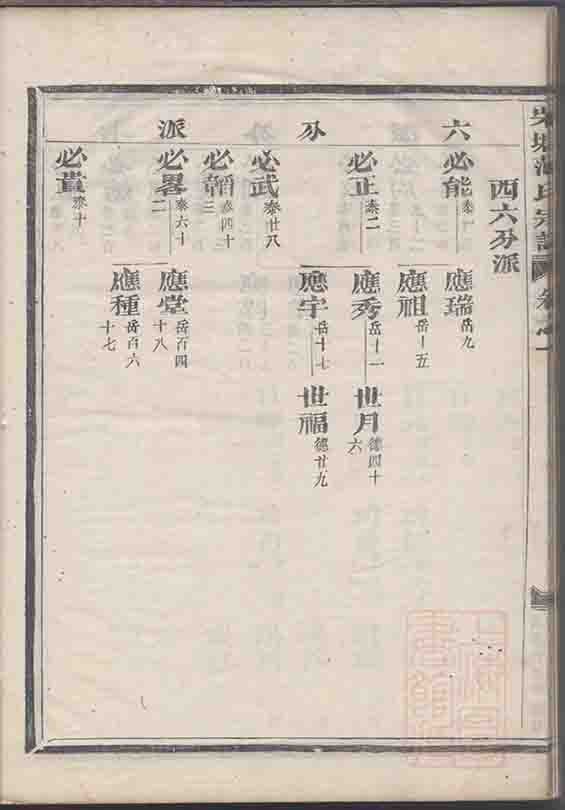 西六分派
六
分
派
必能
應瑞岳九
應祖岳十五
必正泰二
應秀岳十一
世月德四十六
應宇岳十七
世福德廿九
必武泰廿八
必韜泰四十三
必畧泰六十二
應堂岳百四十八
應種岳百六十七